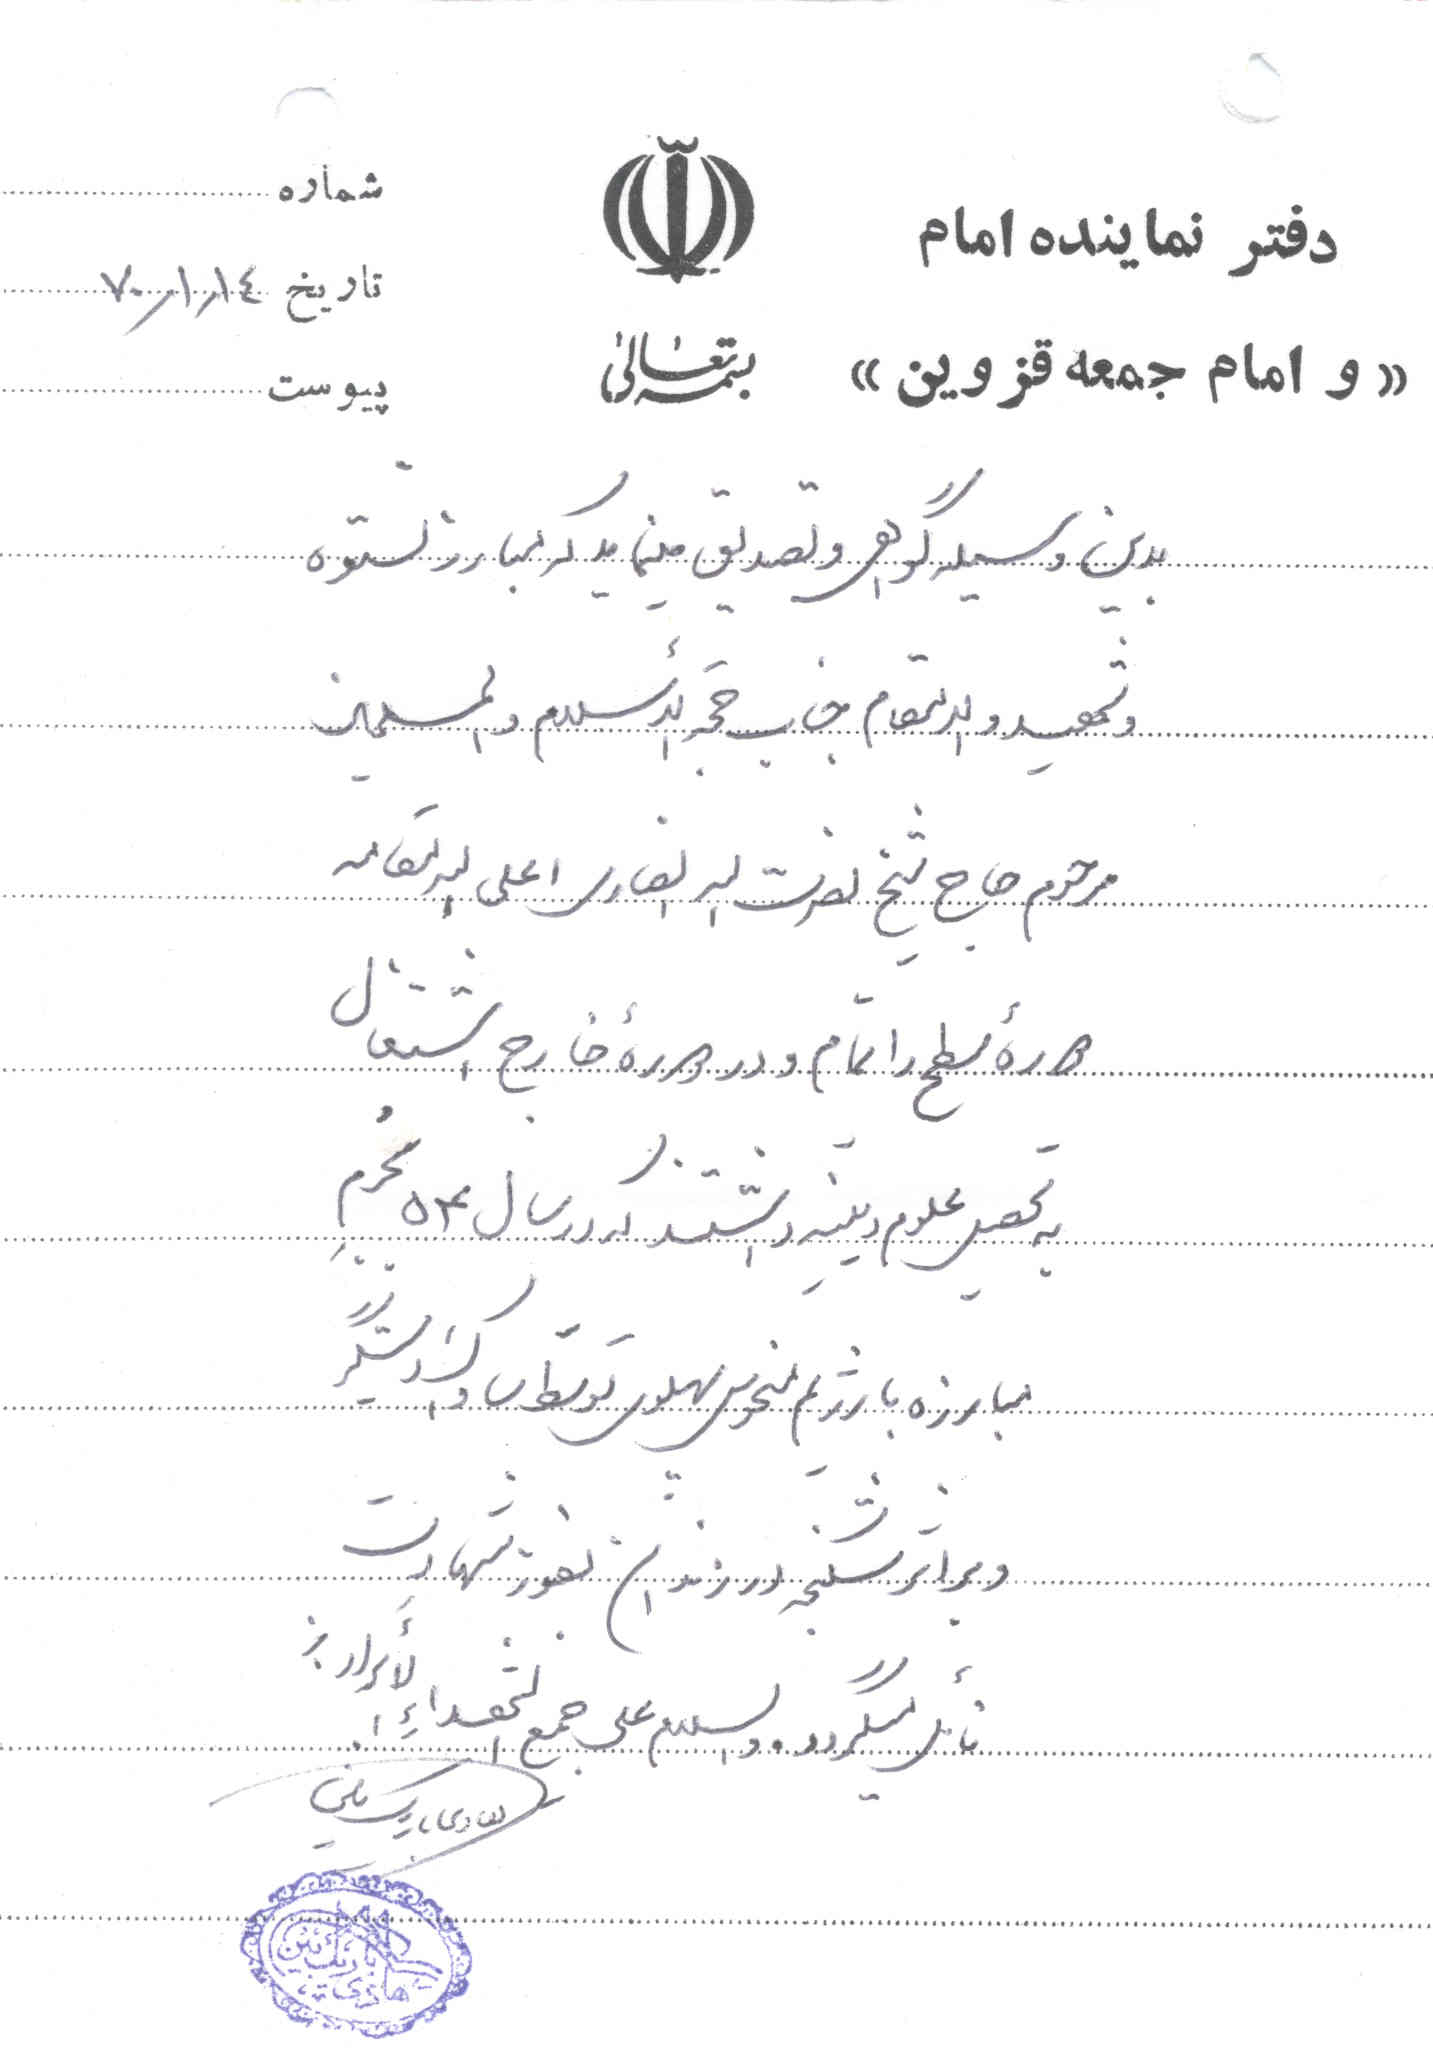 دفتر نماینده امام
« و امام جمعه قزوین »
بسمه تعالی
شماره
تاریخ ۷۰/۱/۱٤
پیوست
بدین وسیله گواهی و تصدیق مینماید که مبارز نستوه
و شهید والامقام جناب حجة الأسلام والمسلمین
مرحوم حاج شیخ نصرت الله انصاری اعلی الله مقامه
دورهٔ سطح را تمام و در دورهٔ خارج اشتغال
به تحصیل علوم دینیه داشتند که در سال ۵۴ بجُرمِ
مبارزه با رژیم منحوس پهلوی توسّط ساواک دستگیر
و بر اثر شکنجه در زندان بفوز شهادت
نائل میگردد. والسلام علی جمیع الشهداءِ الأبرار
هادی باریک بین
هادی باریک بین